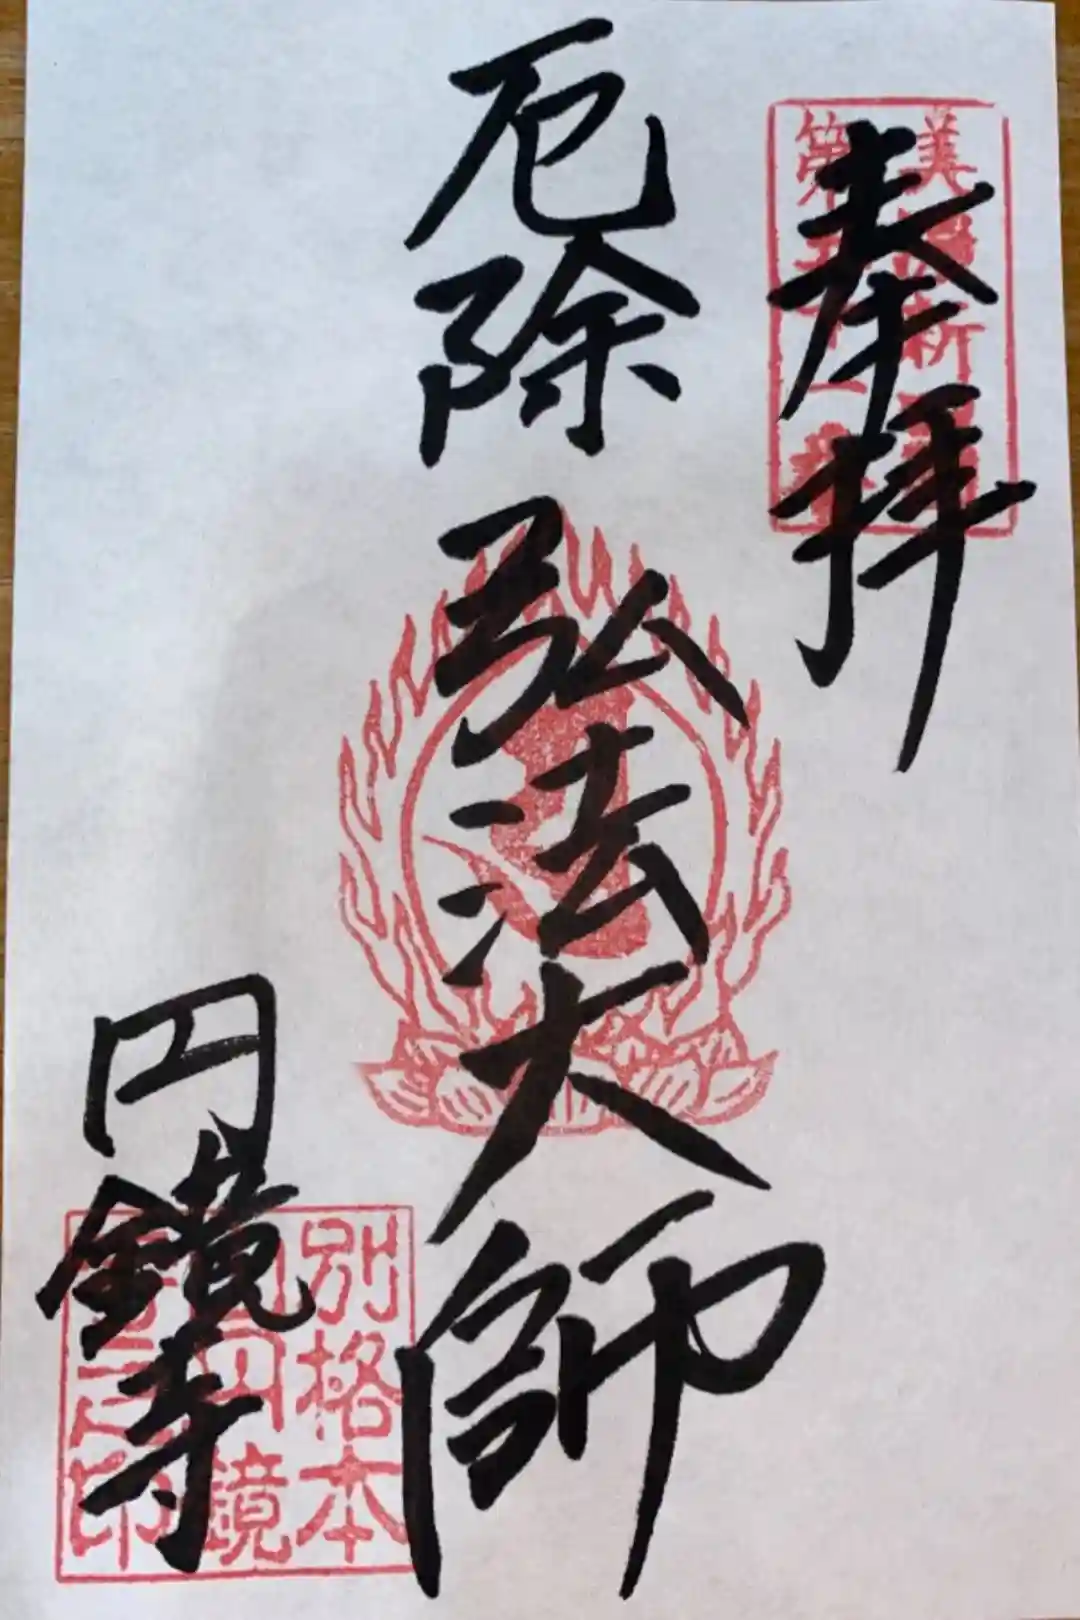 奉拝
美濃新四国
第五十一番
厄除 弘法大師
円鏡寺
別格本
山円鏡
寺之印